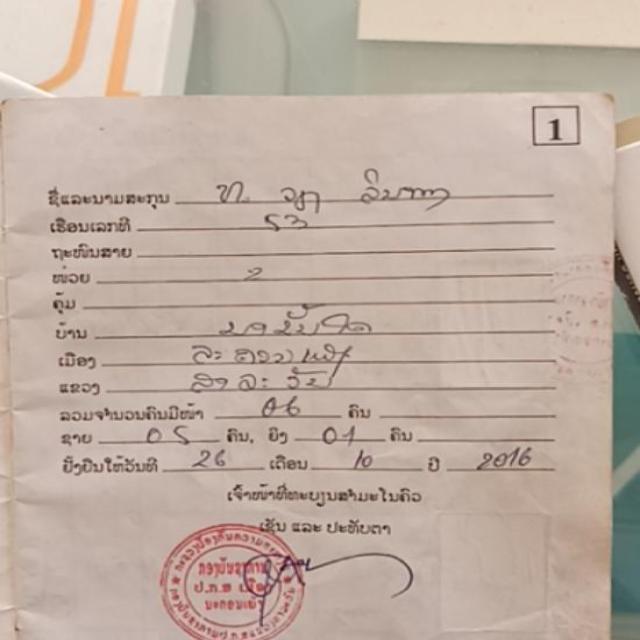 1
ຊື່ແລະນາມສະກຸນ ທ.
ເຮືອນເລກທີ 53
ຖະໜົນສາຍ
ໜ່ວຍ 2
ຄຸ້ມ
ບ້ານ
ເມືອງ ລະຄອນເພັງ
ແຂວງ ສາລະວັນ
ລວມຈຳນວນຄົນມີໜ້າ 06 ຄົນ
ຊາຍ 05 ຄົນ, ຍິງ 01 ຄົນ
ຢັ້ງຢືນໃຫ້ວັນທີ 26 ເດືອນ 10 ປີ 2016
ເຈົ້າໜ້າທີ່ທະບຽນສຳມະໂນຄົວ
ເຊັນ ແລະ ປະທັບຕາ